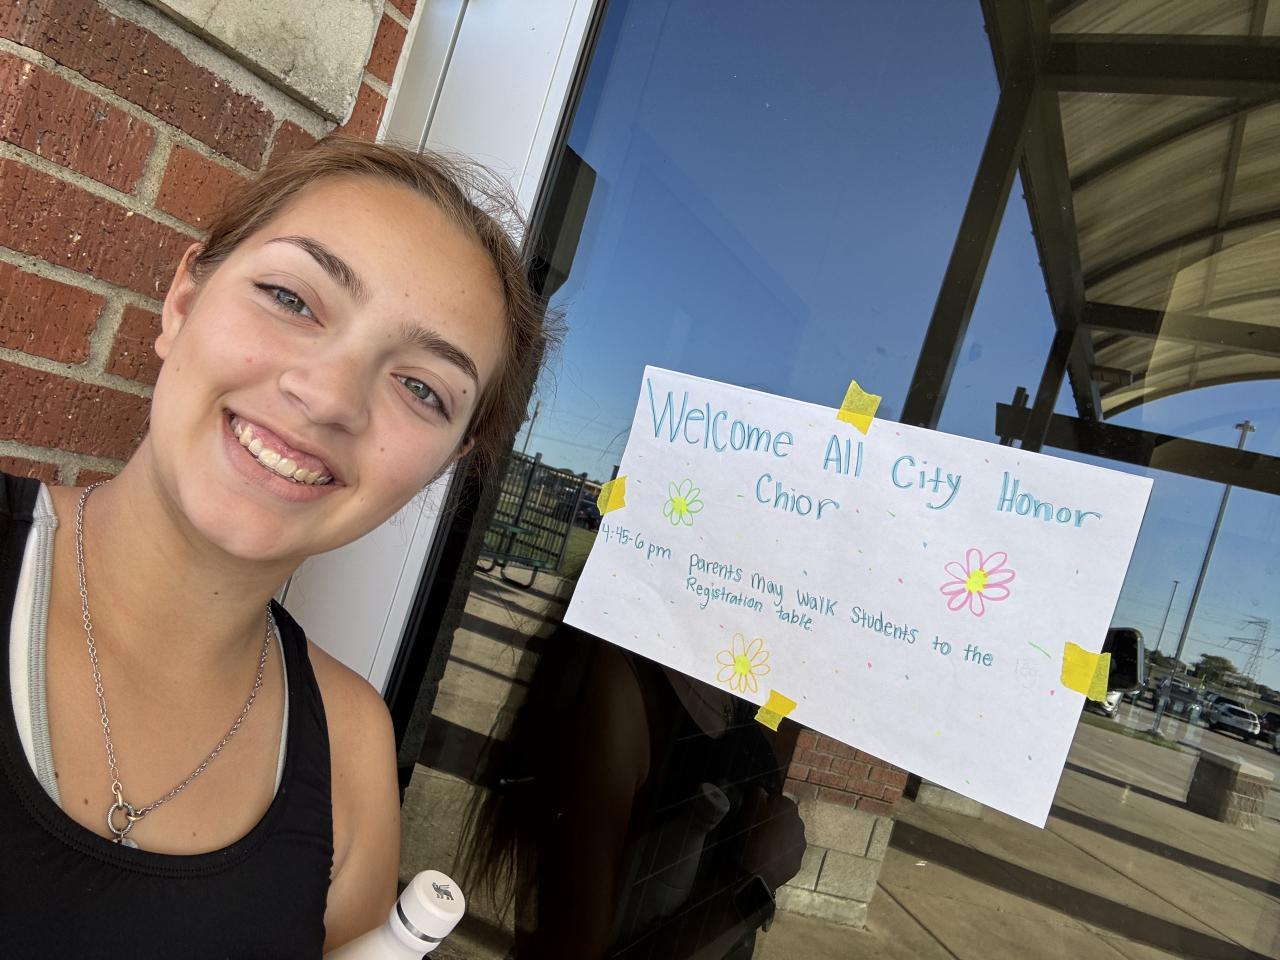 Welcome All City Honor
Chior
4:45-6 pm parents may walk students to the
Registration table.